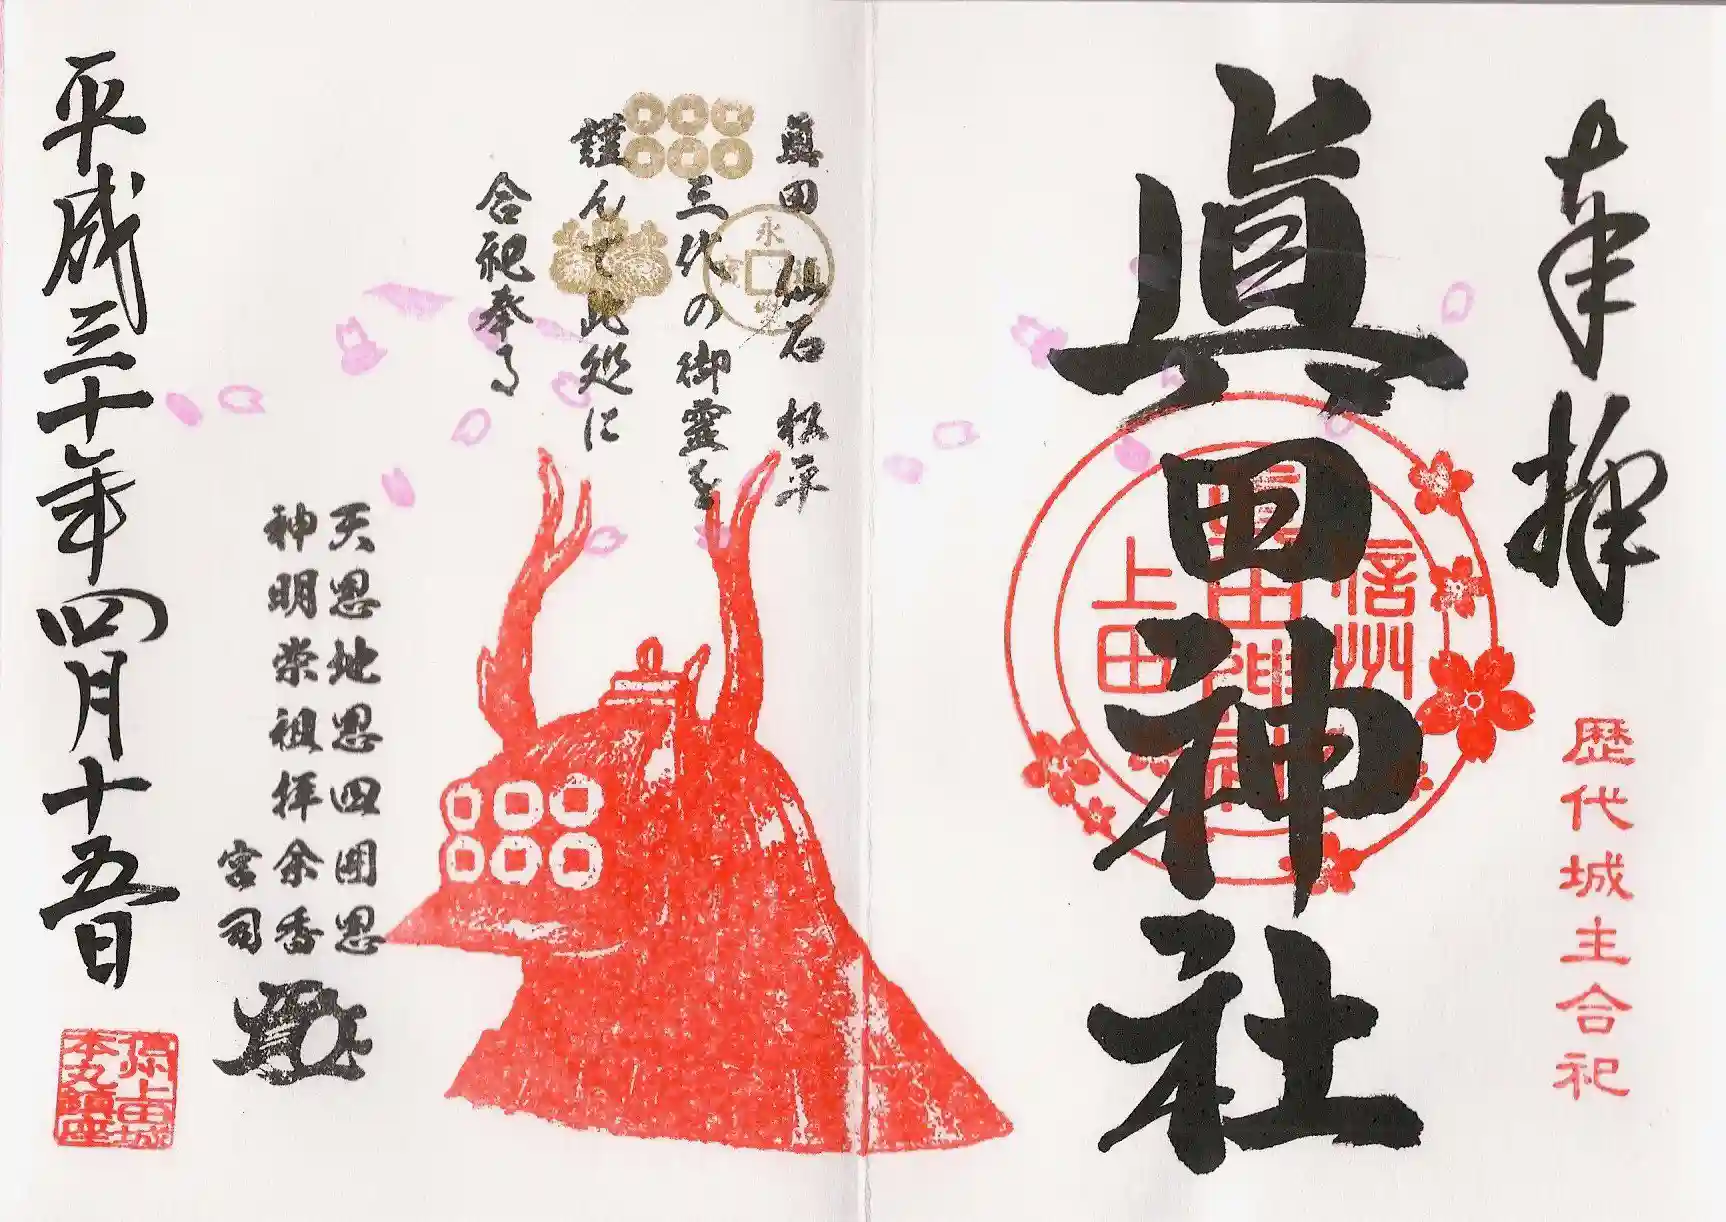 奉拝
歴代城主合祀
眞田神社
信州
眞田神社
上田
眞田 仙石 松平
三代の御霊を
謹んで此処に
合祀奉る
永
天恩地恩四囲恩
神明崇祖拝余香
宮司
平成三十年四月十五日
上田城
本丸鎮座